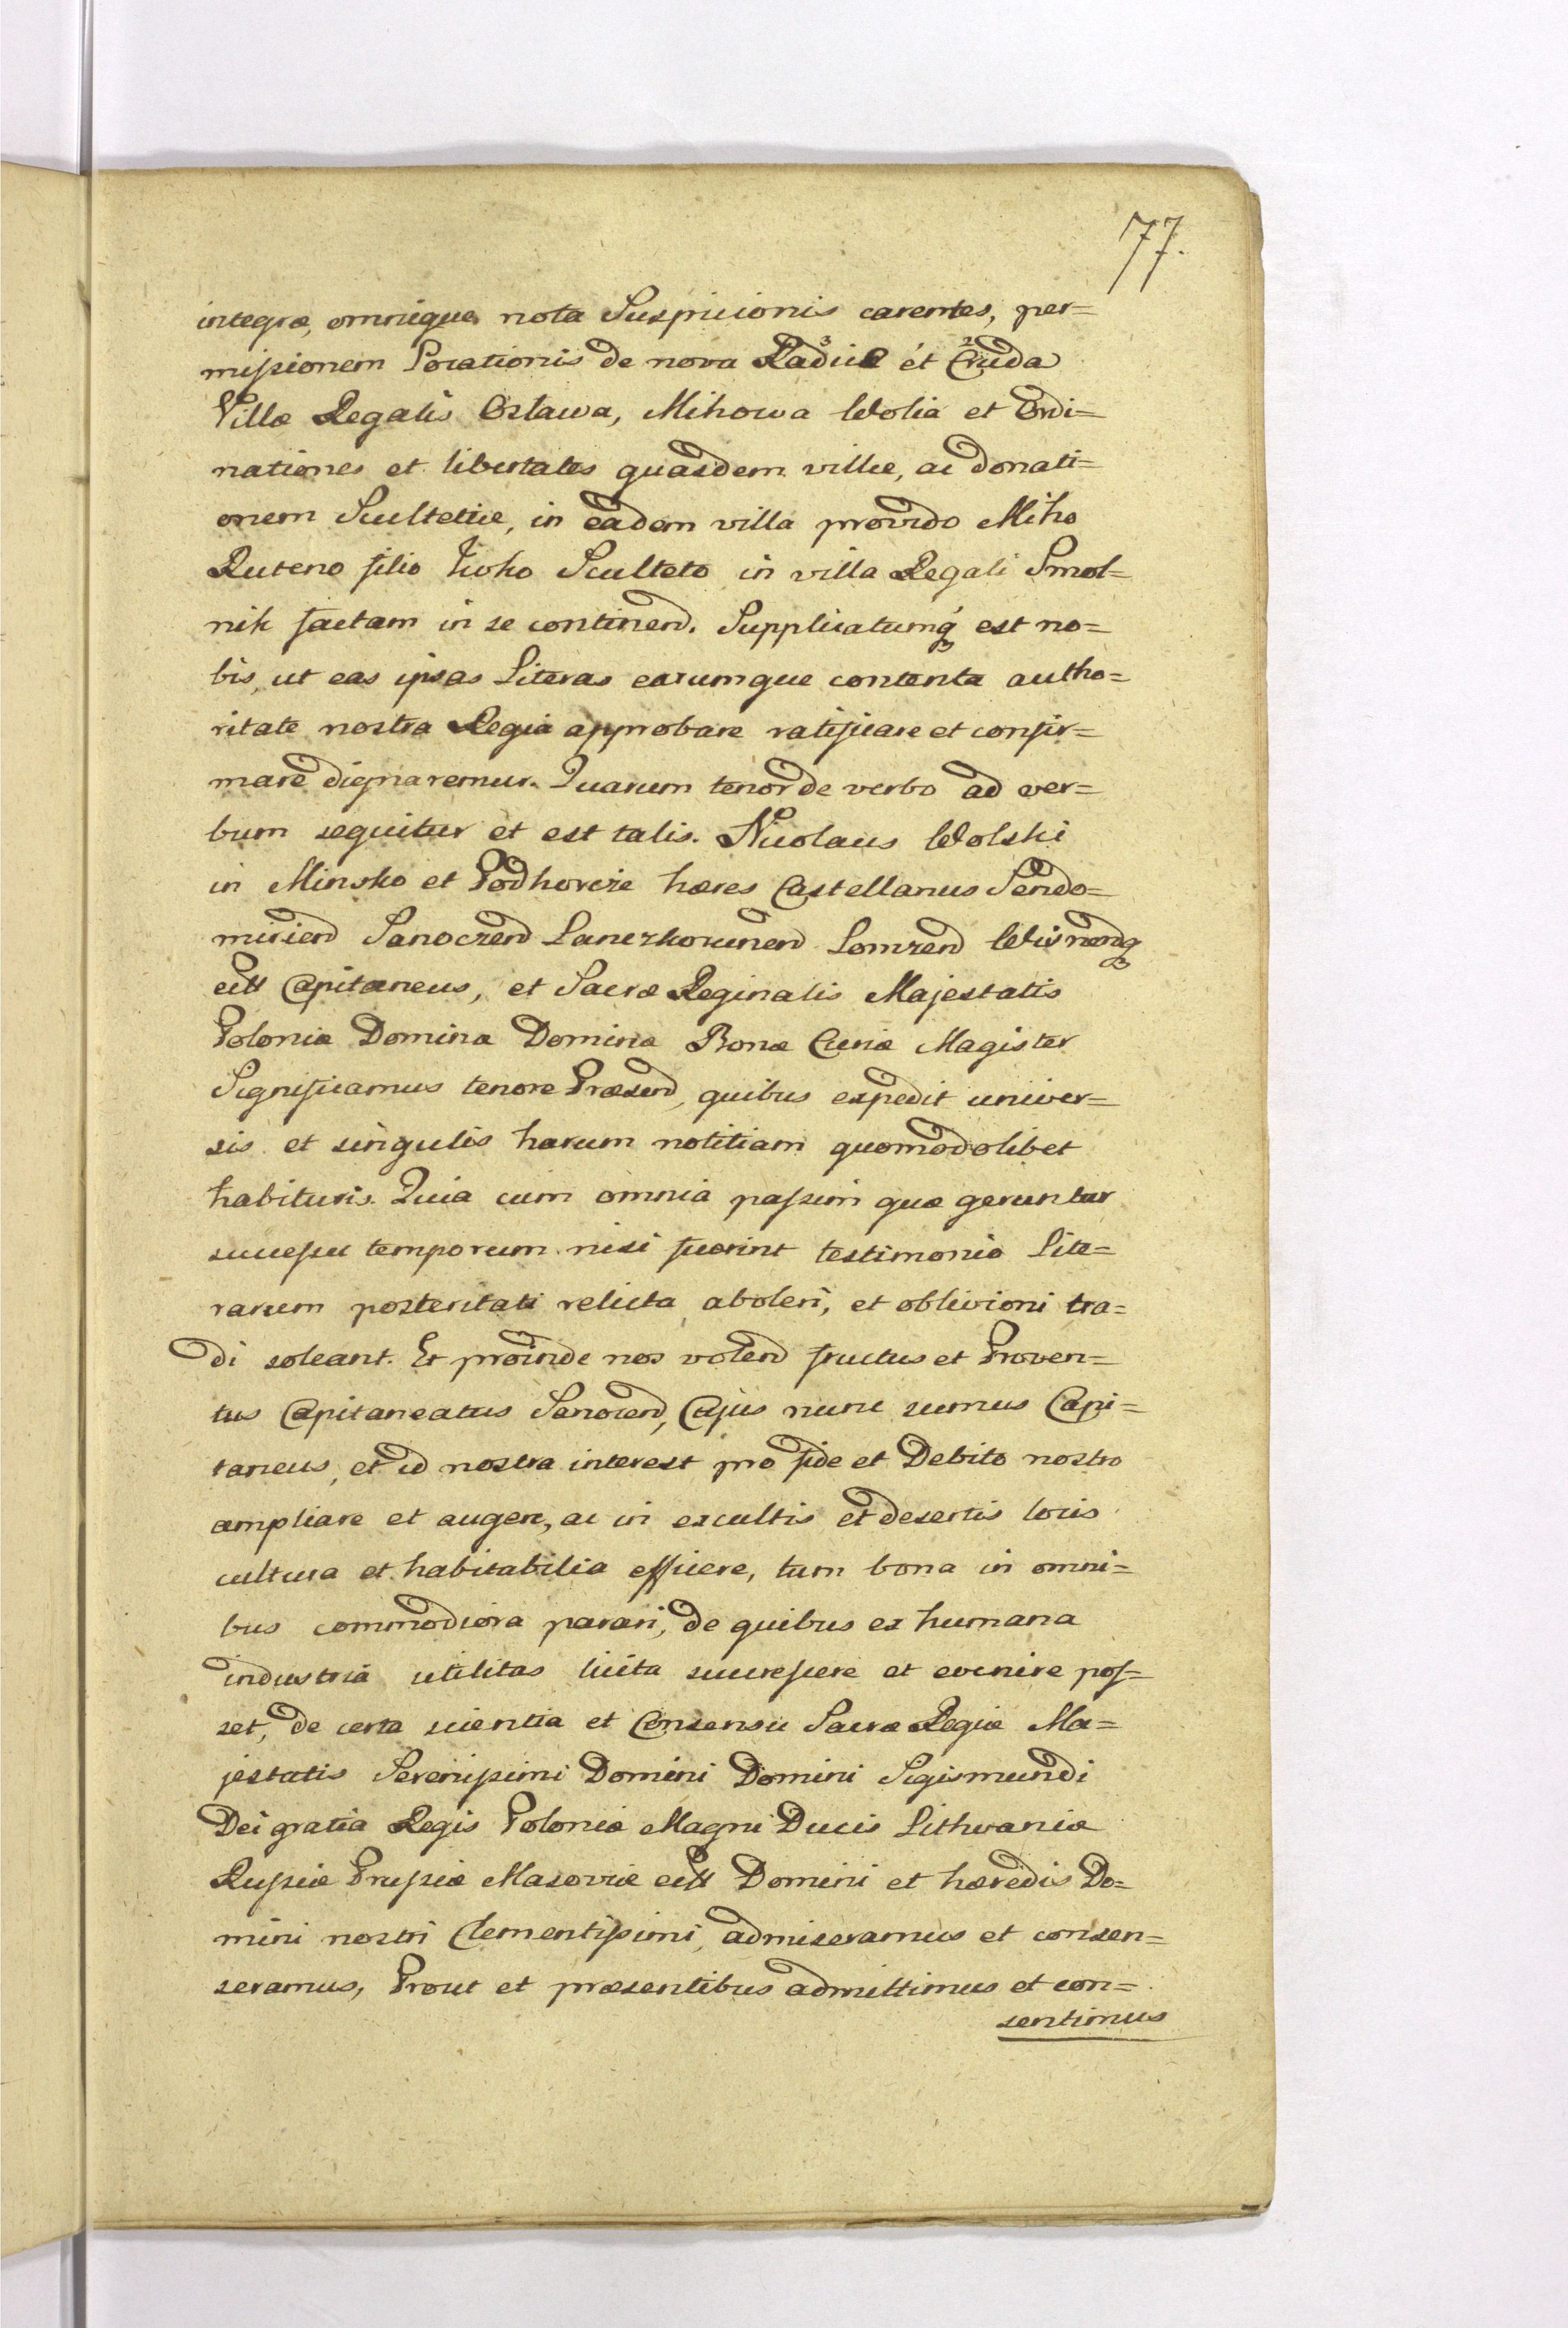 77.
integræ, omnique nota Suspicionis carentes, per=
missionem Locationis de nova Radice et Cruda
Villæ Regalis Osława, Mihowa Wolia et Ordi=
nationes et libertates quasdem villæ, ac donati=
onem Scultetiæ, in eadem villa provido Miho
Ruteno filio Iwko Sculteto in villa Regali Smol=
nik factam in se continend. Supplicatumq́ est no=
bis, ut eas ipsas Literas earumque contenta autho=
ritate nostra Regia approbare ratificare et confir=
mare dignaremur. Quarum tenor de verbo ad ver=
bum sequitur et est talis. Nicolaus Wolski
in Minsko et Podhorcze hæres Castellanus Sendo=
mirien̄ Sanoczen̄ Lanczkorunen̄ Lomzen̄ Wisnenq
ett Capitaneus, et Sacræ Reginalis Majestatis
Poloniæ Dominæ Dominæ Bonæ Curiæ Magister
Significamus tenore Præsend, quibus expedit univer=
sis et singulis harum notitiam quomodolibet
habituris. Quia cum omnia passim quæ geruntur
successu temporum nisi fuerint testimonio Lite=
rarum posteritati relicta, aboleri, et oblivioni tra=
di soleant. Et proinde nos volend fructus et Proven=
tus Capitaneatus Sanocend, Cujus nunc sumus Capi=
taneus, et id nostra interest pro fide et Debito nostro
ampliare et augere, ac in excultis et desertis locis
cultura et habitabilia efficere, tum bona in omni=
bus commodiora parari, de quibus ex humana
industria utilitas licita succrescere et evenire pos=
set, de certa scientia et Consensu Sacræ Regiæ Ma=
jestatis Serenissimi Domini Domini Sigismundi
Dei gratia Regis Poloniæ Magni Ducis Lithvaniæ
Russiæ Prussiæ Masoviæ ett Domini et hæredis Do=
mini nostri Clementissimi, admiseramus et consen=
seramus, Prout et præsentibus admittimus et con=
sentimus